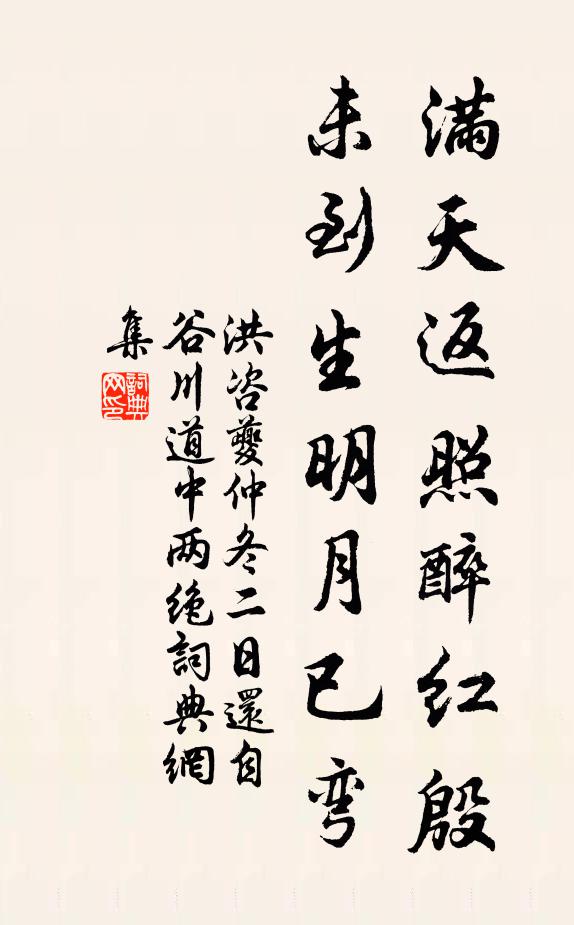 满天返照醉红殷
未到生明月已弯
洪咨夔仲冬二日還自
谷川道中两绝詞典網
集
詞典
网印